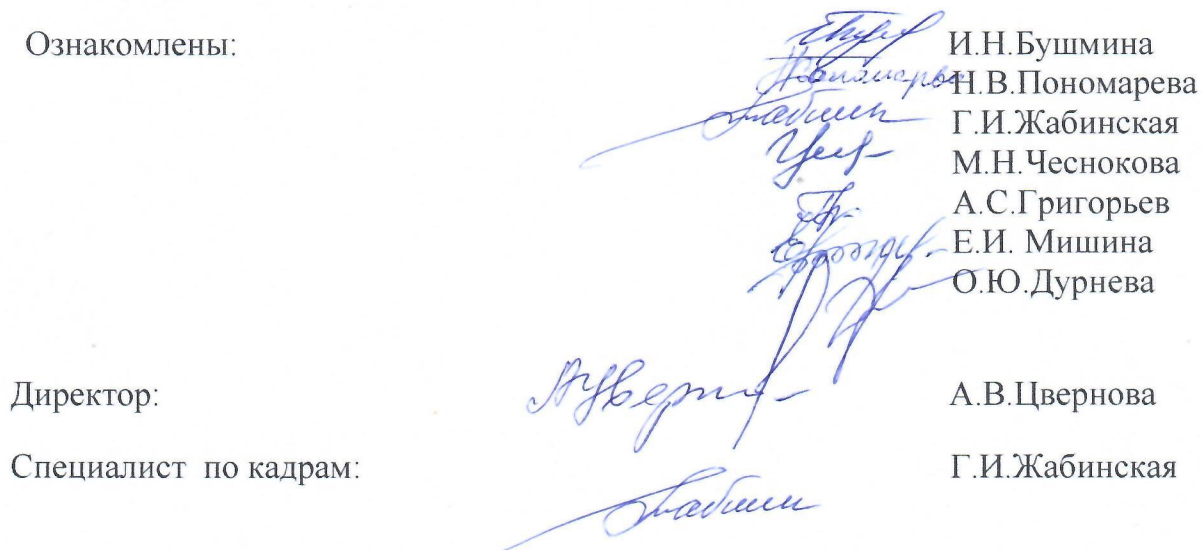 Ознакомлены: И.Н.Бушмина
Н.В.Пономарева
Г.И.Жабинская
М.Н.Чеснокова
А.С.Григорьев
Е.И. Мишина
О.Ю.Дурнева
Директор: А.В.Цвернова
Специалист по кадрам: Г.И.Жабинская